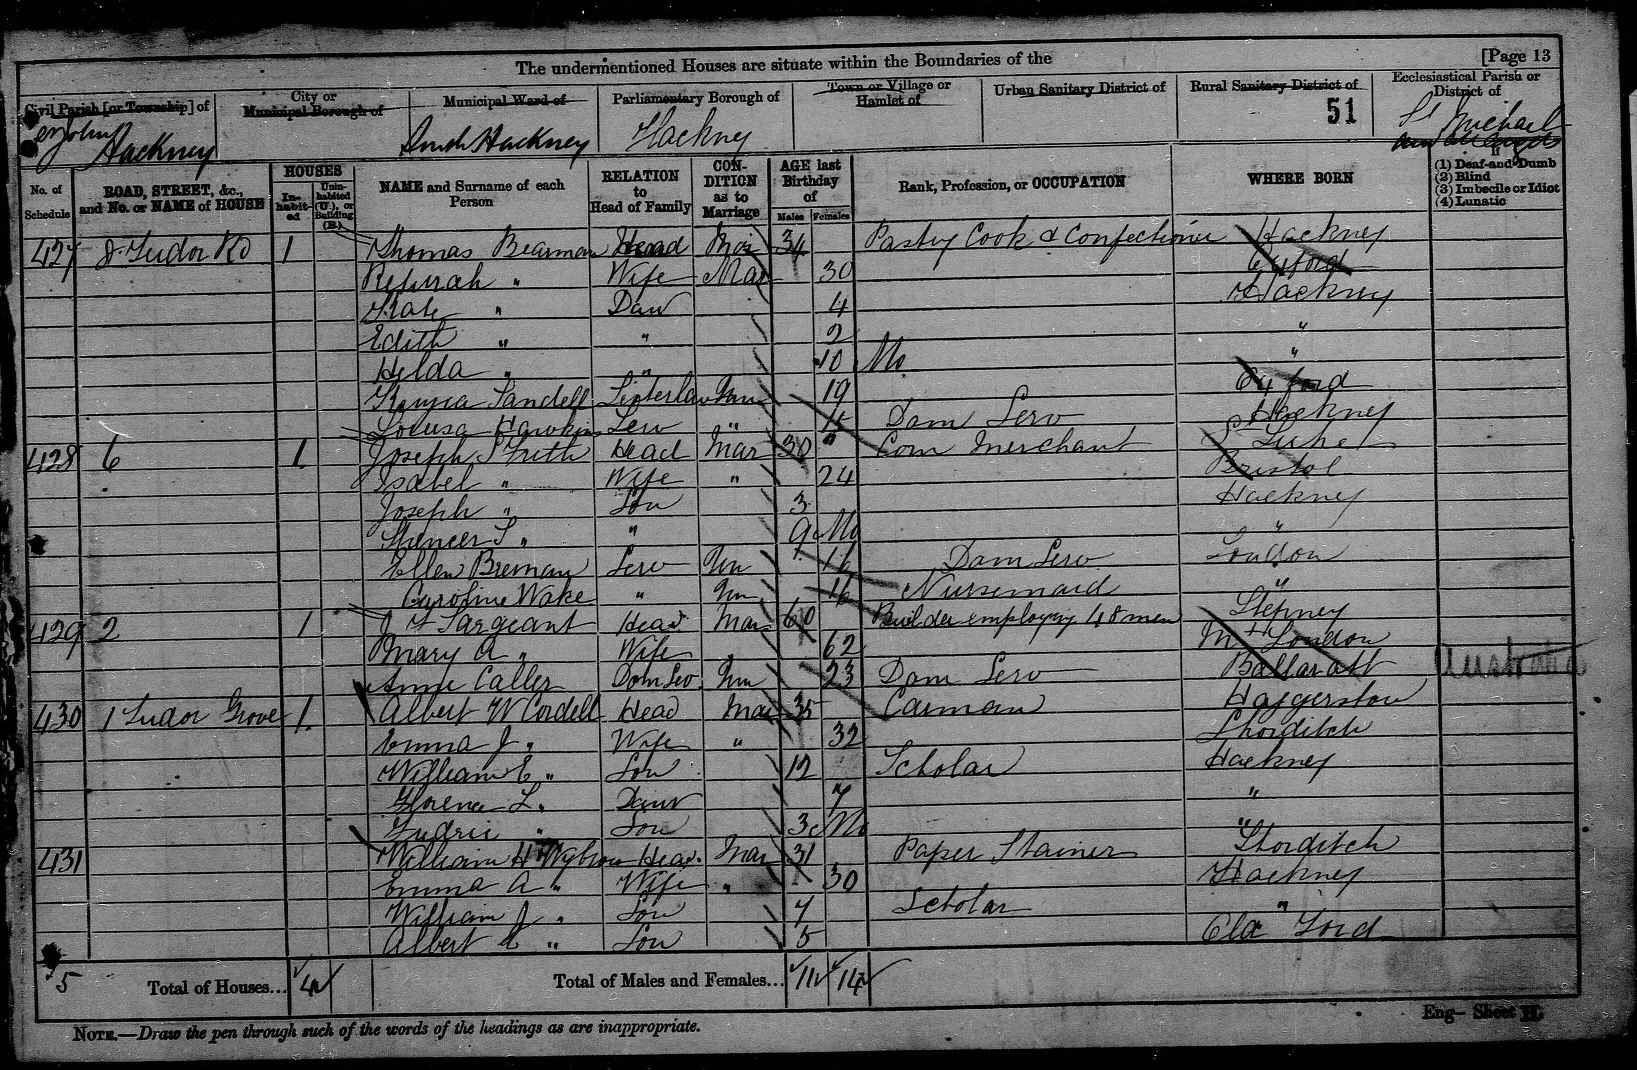 The undermentioned Houses are situate within the Boundaries of the [Page 13
Civil Parish [or Township] of City or Municipal Borough of Municipal Ward of Parliamentary Borough of Town or Village or Hamlet of Urban Sanitary District of Rural Sanitary District of Ecclesiastical Parish or District of
St John Hackney South Hackney Hackney 51 St Michael
No. of Schedule ROAD, STREET, &c., and No. or NAME of HOUSE HOUSES Inhabited Uninhabited (U.), or Building (B.) NAME and Surname of each Person RELATION to Head of Family CONDITION as to Marriage AGE last Birthday of Males Females Rank, Profession, or OCCUPATION WHERE BORN If (1) Deaf-and-Dumb (2) Blind (3) Imbecile or Idiot (4) Lunatic
427 8 Tudor Rd 1 Thomas Bearman Head Mar 34 Pastry Cook & Confectioner Hackney
" Wife Mar 30
Kate " Daur 4 Hackney
Edith " " 2 "
Hilda " " 10 Mo "
Sandell Sisterlaw Unm 19
Louisa Hawkins Serv " 15 Dom Serv Hackney
428 6 1 Joseph S Frith Head Mar 30 Corn Merchant St Lukes
Isabel " Wife " 24 Bristol
Joseph " Son 3 Hackney
Spencer S " " 9 Mo "
Ellen Breman Serv Un 16 Dom Serv London
Caroline Wake " Un 16 Nursemaid "
429 2 1 J T Sargeant Head Mar 60 Builder employing 48 men Stepney
Mary A " Wife " 62 London
Anne Caller Dom Serv Un 23 Dom Serv Ballaratt Australia
430 1 Tudor Grove 1 Albert W Cordell Head Mar 35 Carman Haggerston
Emma J " Wife " 32 Shorditch
William E " Son 12 Scholar Hackney
Florence L " Daur 7 "
" Son 3 Mo "
431 William H Wybrow Head Mar 31 Paper Stainer Shorditch
Emma A " Wife " 30 Hackney
William J " Son 7 Scholar "
Albert E " Son 5 Old Ford
5 Total of Houses... 4 Total of Males and Females... 11 14
NOTE.—Draw the pen through such of the words of the headings as are inappropriate.
Eng— Sheet H.